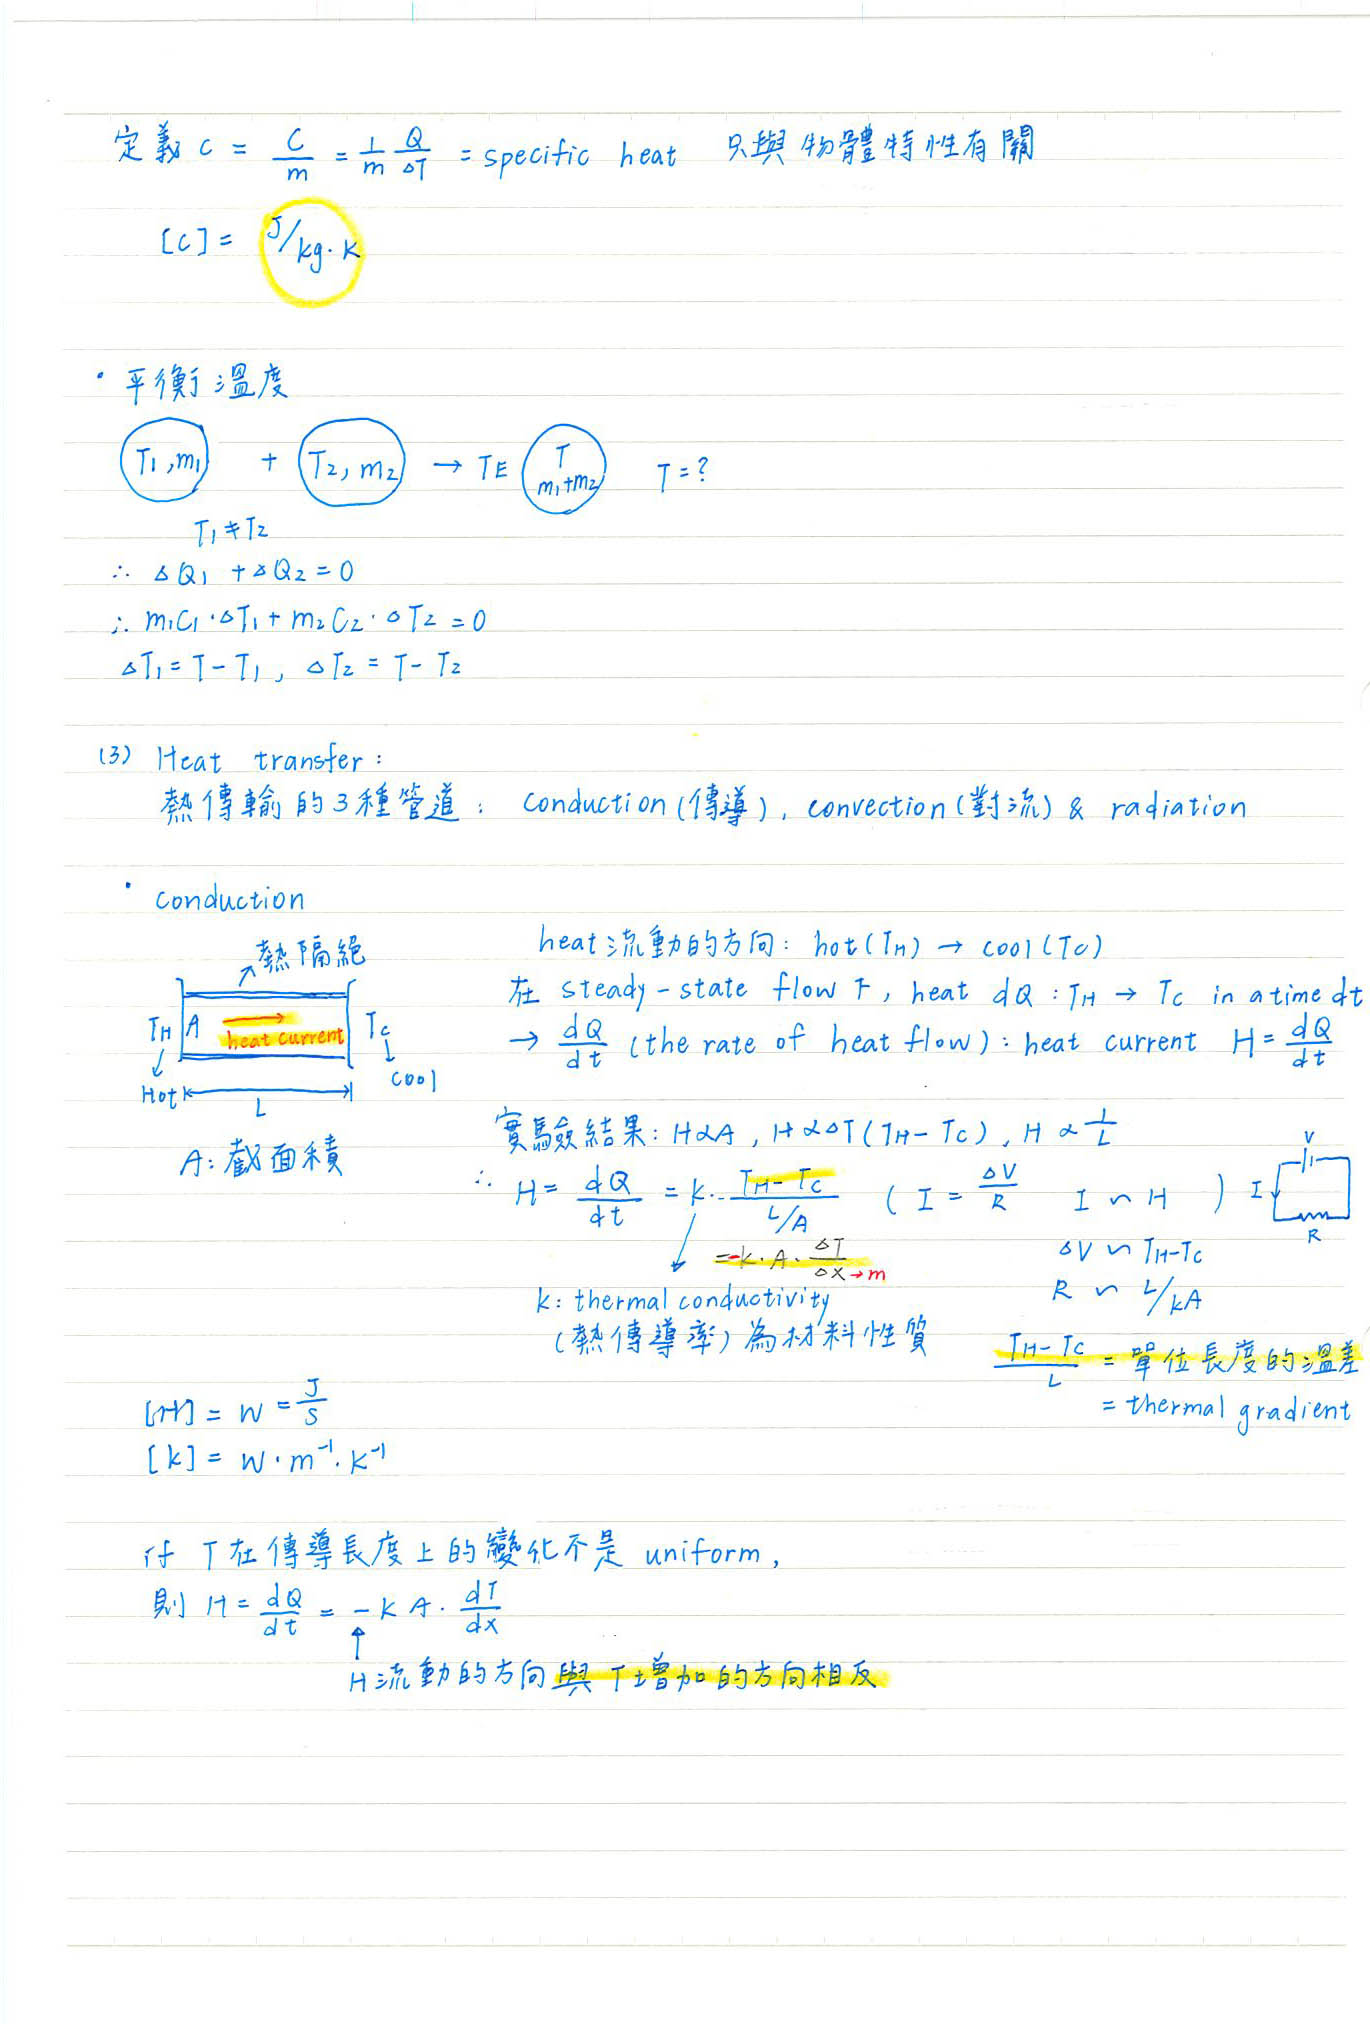 定義 c = C/m = 1/m Q/ΔT = specific heat 只與物體特性有關
[c] = J/kg·K
• 平衡溫度
T1, m1 + T2, m2 → TE T m1+m2 T = ?
T1 ≠ T2
∴ ΔQ1 + ΔQ2 = 0
∴ m1C1·ΔT1 + m2C2·ΔT2 = 0
ΔT1 = T - T1, ΔT2 = T - T2
(3) Heat transfer:
熱傳輸的3種管道: conduction(傳導), convection(對流) & radiation
• conduction
熱隔絕
TH A heat current TC
Hot L cool
A: 截面積
heat流動的方向: hot(TH) → cool(TC)
在 steady-state flow下, heat dQ: TH → TC in a time dt
→ dQ/dt (the rate of heat flow): heat current H = dQ/dt
實驗結果: H∝A, H∝ΔT(TH-TC), H ∝ 1/L
∴ H = dQ/dt = k·(TH-TC)/(L/A) ( I = ΔV/R I ∽ H ) I V R
= -k·A·ΔT/ΔX → m ΔV ∽ TH-TC
k: thermal conductivity R ∽ L/kA
(熱傳導率)為材料性質
(TH-TC)/L = 單位長度的溫差
= thermal gradient
[H] = W = J/S
[k] = W·m⁻¹·K⁻¹
if T在傳導長度上的變化不是 uniform,
則 H = dQ/dt = -kA·dT/dx
↑
H流動的方向與T增加的方向相反